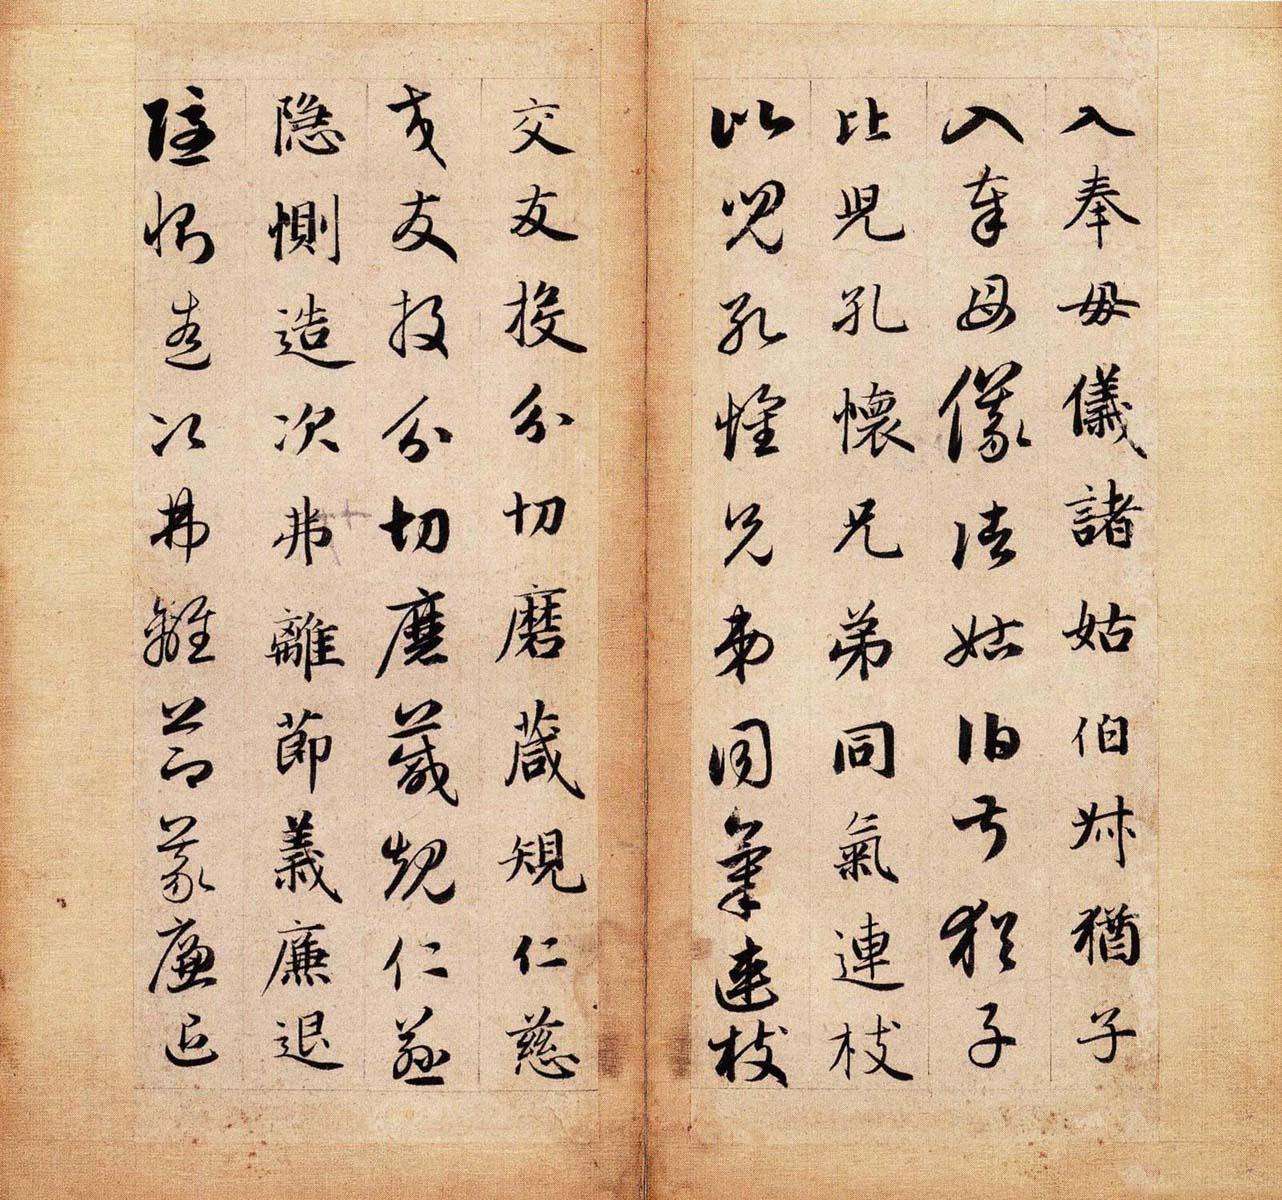 入奉母儀諸姑伯叔猶子
入奉母儀諸姑伯叔猶子
比児孔懷兄弟同氣連枝
比児孔懷兄弟同氣連枝
交友投分切磨葴規仁慈
交友投分切磨葴規仁慈
隐惻造次弗離莭義廉退
隐惻造次弗離莭義廉退